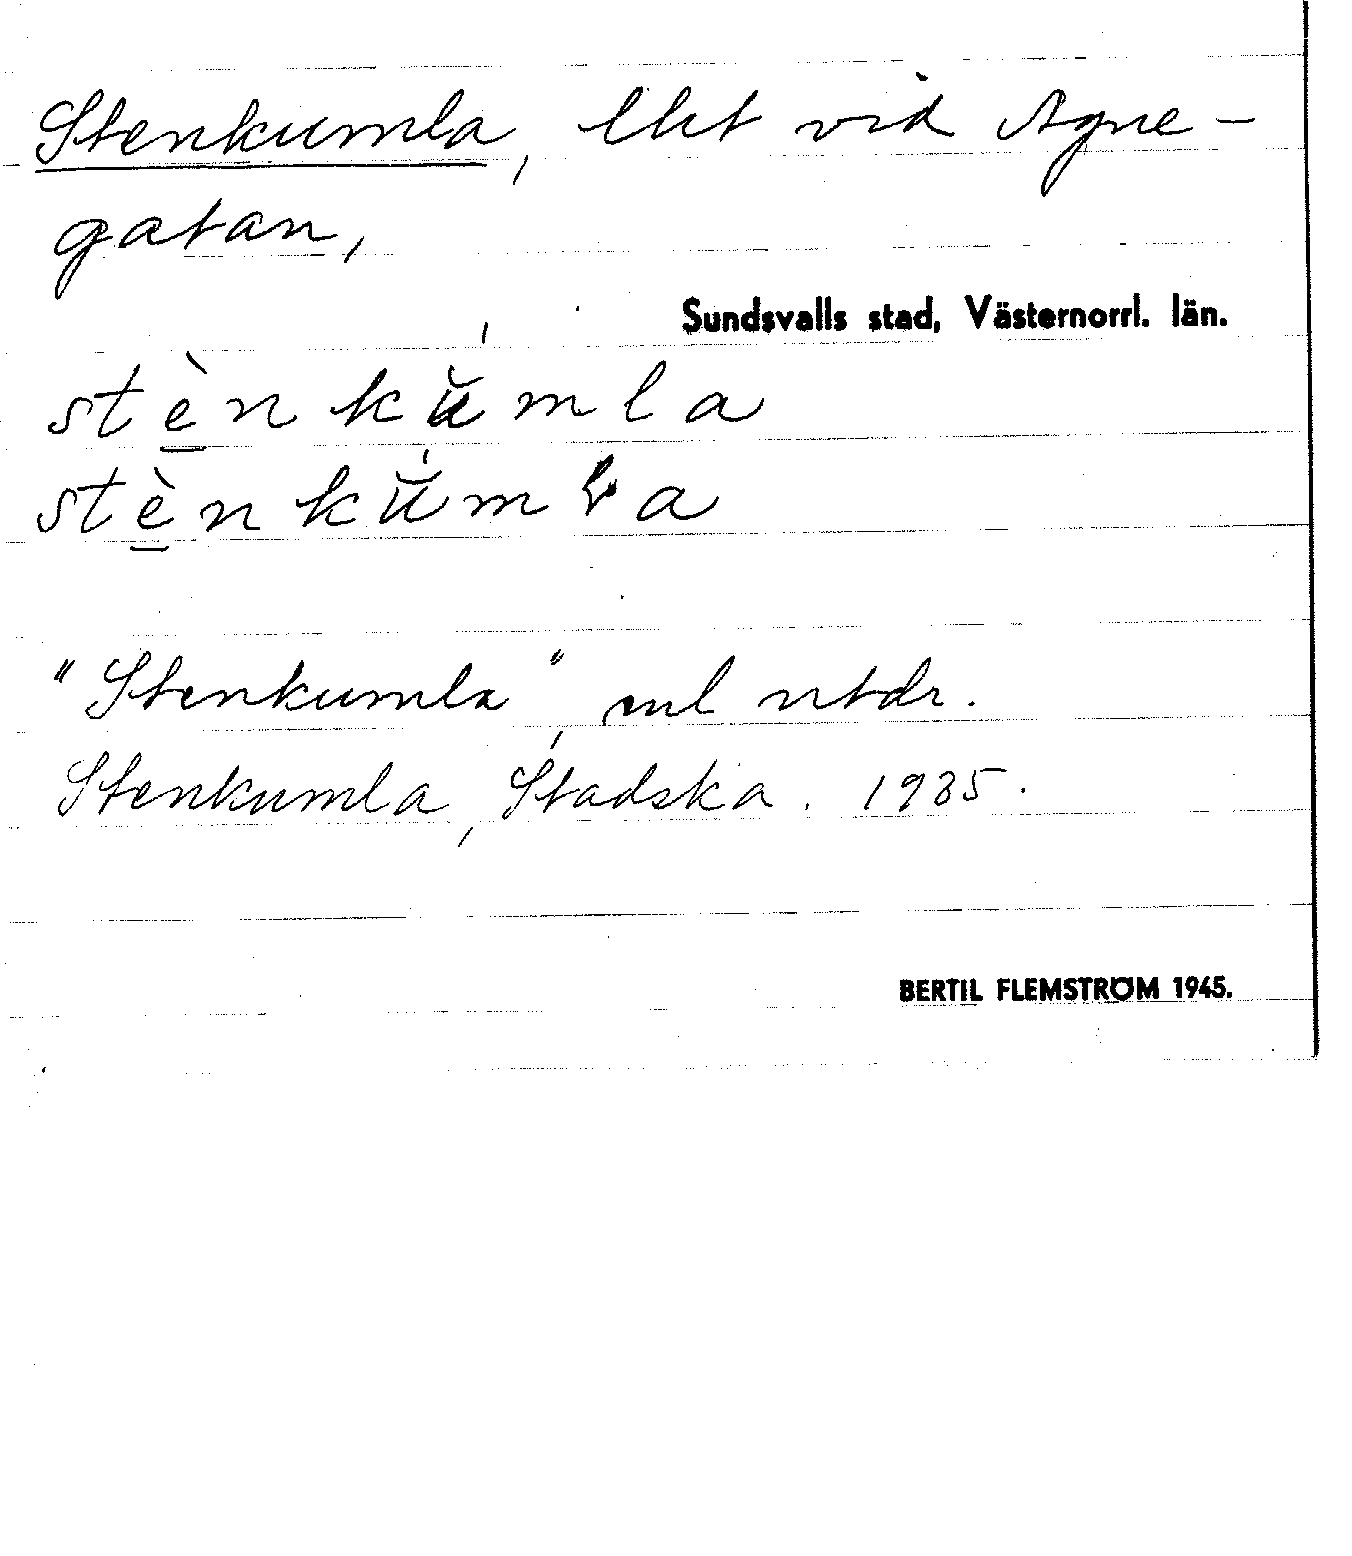 Stenkumla, lht vid Agne-
gatan,
Sundsvalls stad, Västernorrl. län.
stè̲nkŭ́mla
stè̲nkŭ́mɽa
"Stenkumla", enl ntdr.
Stenkumla, Stadska. 1935.
BERTIL FLEMSTRÖM 1945.